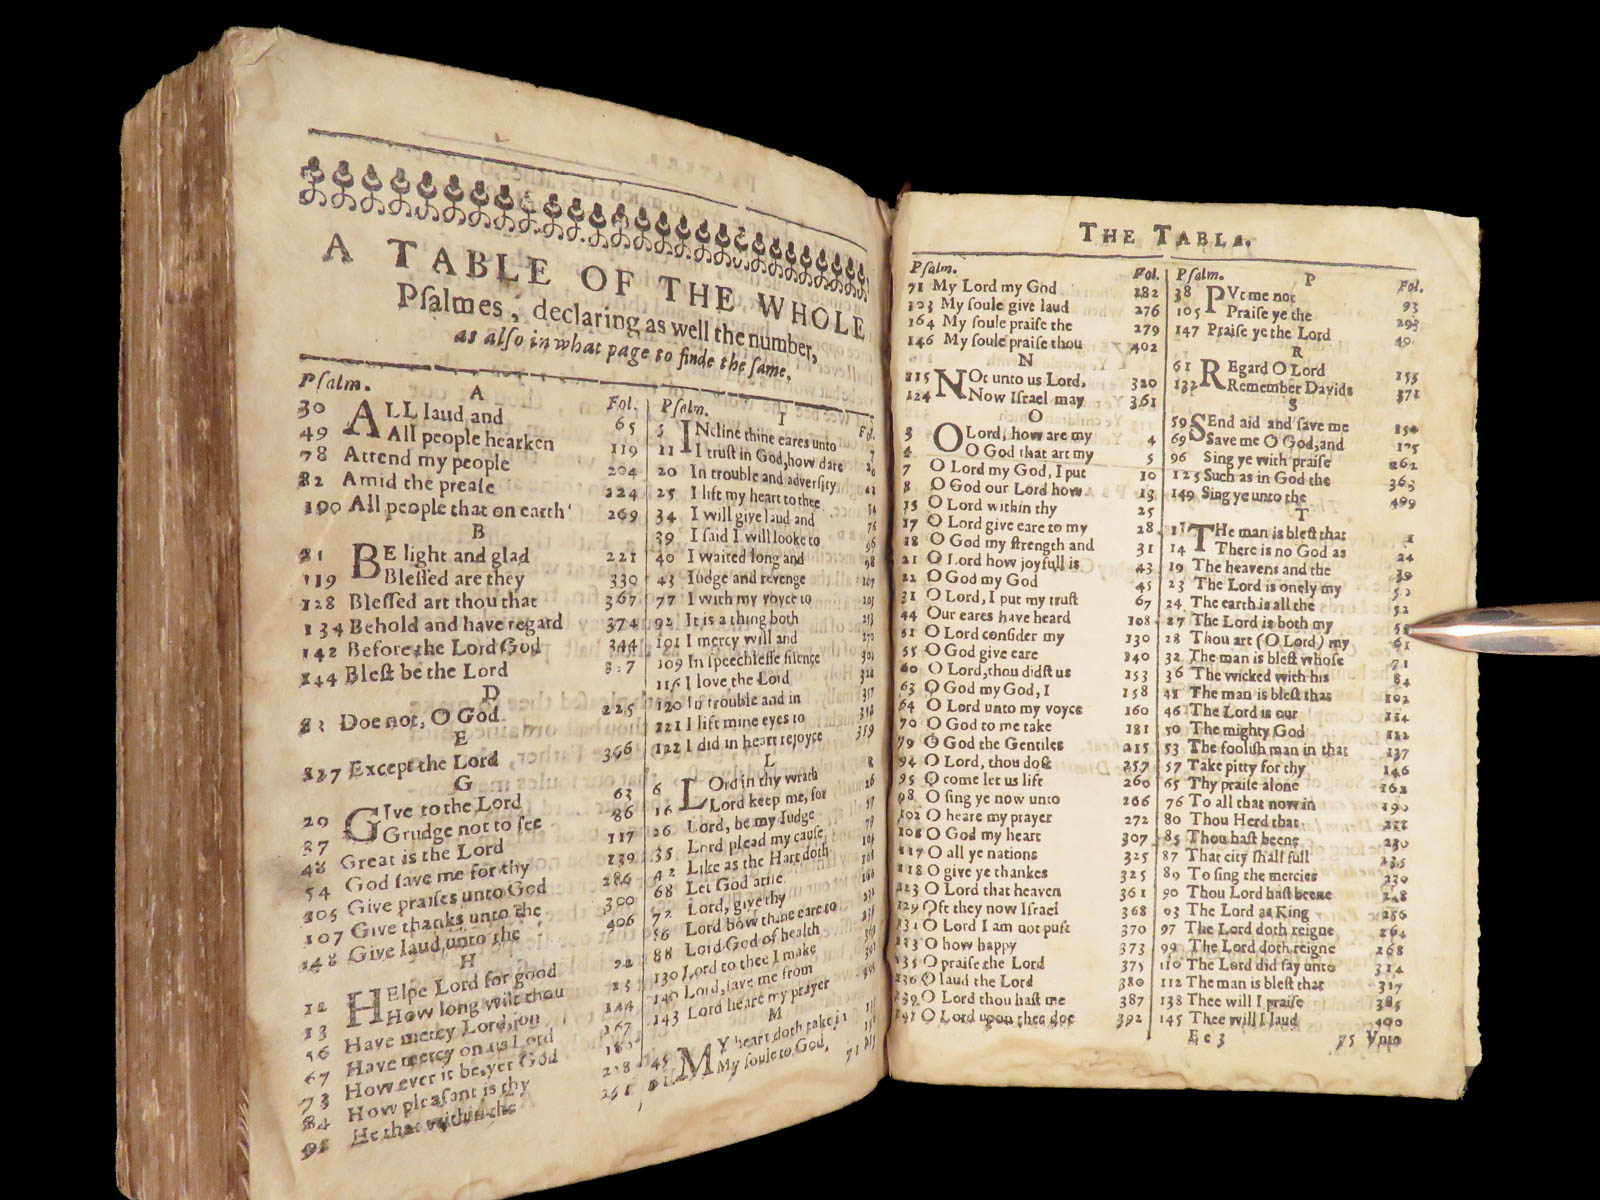 A TABLE OF THE WHOLE
Pſalmes, declaring as well the number,
as alſo in what page to finde the ſame.
Pſalm. Fol.
A
30 ALL laud and 65
49 All people hearken 119
78 Attend my people 204
82 Amid the preaſe 224
100 All people that on earth 269
B
81 BE light and glad 221
119 Bleſſed are they 330
128 Bleſſed art thou that 367
134 Behold and have regard 374
142 Before the Lord God 344
144 Bleſt be the Lord
D
83 Doe not, O God 225
E
127 Except the Lord 366
G
29 GIve to the Lord 63
37 Grudge not to ſee 86
48 Great is the Lord 117
54 God ſave me for thy 139
105 Give praiſes unto God 286
107 Give thanks unto the 300
148 Give laud unto the 406
H
12 HElpe Lord for good 22
13 How long wilt thou 23
56 Have mercy Lord on 144
67 Have mercy on us Lord 167
73 However it be, yet God
84 How pleaſant is thy 228
91 He that within the
Pſalm. Fol.
I
5 INcline thine eares unto 7
11 I truſt in God, how dare 20
20 In trouble and adverſity
25 I lift my heart to thee 54
34 I will give laud and 76
39 I ſaid I will looke to 96
40 I waited long and 98
43 Iudge and revenge 107
77 I with my voyce to
92 It is a thing both
101 I mercy will and
109 In ſpeechleſſe ſilence
116 I love the Lord
120 In trouble and in
121 I lift mine eyes to
122 I did in heart rejoyce 359
L
6 LOrd in thy wrath 8
16 Lord keep me, for 26
26 Lord, be my Iudge 57
35 Lord plead my cauſe 79
42 Like as the Hart doth
68 Let God ariſe
72 Lord, give thy
86 Lord bow thine eare to
88 Lord God of health
130 Lord to thee I make
140 Lord, ſave me from
143 Lord heare my prayer
M
45 MY heart doth take in
My ſoule to God,
71
THE TABLE.
Pſalm. Fol.
71 My Lord my God 182
103 My ſoule give laud 276
164 My ſoule praiſe the 279
146 My ſoule praiſe thou 402
N
115 NOt unto us Lord, 320
124 Now Iſrael may 361
O
3 O Lord, how are my 4
4 O God that art my 5
7 O Lord my God, I put 10
8 O God our Lord how 13
15 O Lord within thy 25
17 O Lord give eare to my 28
18 O God my ſtrength and 31
21 O Lord how joyfull is 43
22 O God my God 45
31 O Lord, I put my truſt 67
44 Our eares have heard 108
51 O Lord conſider my 130
55 O God give eare 140
60 O Lord, thou didſt us 153
63 O God my God, I 158
64 O Lord unto my voyce 160
70 O God to me take 181
79 O God the Gentiles 215
94 O Lord, thou doſt 257
95 O come let us lift 260
98 O ſing ye now unto 266
102 O heare my prayer 272
108 O God my heart 307
117 O all ye nations 325
118 O give ye thankes 325
123 O Lord that heaven 361
129 Oft they now Iſrael 368
131 O Lord I am not puft 370
133 O how happy 373
135 O praiſe the Lord 375
136 O laud the Lord 380
139 O Lord thou haſt me 387
141 O Lord upon thee doe 392
Pſalm. Fol.
P
38 PVt me not 93
105 Praiſe ye the 293
147 Praiſe ye the Lord
R
61 REgard O Lord 155
132 Remember Davids 371
S
59 SEnd aid and ſave me 150
69 Save me O God, and 175
96 Sing ye with praiſe 262
125 Such as in God the 363
149 Sing ye unto the 409
T
1 THe man is bleſt that 1
14 There is no God as 24
19 The heavens and the 39
23 The Lord is onely my 50
24 The earth is all the 52
27 The Lord is both my 58
28 Thou art (O Lord) my 61
32 The man is bleſt whoſe 71
36 The wicked with his 84
41 The man is bleſt that 102
46 The Lord is our 114
50 The mighty God 122
53 The fooliſh man in that 137
57 Take pitty for thy 146
65 Thy praiſe alone 162
76 To all that now in 190
80 Thou Herd that 218
85 Thou haſt beene 230
87 That city ſhall full 235
89 To ſing the mercies 239
90 Thou Lord haſt beene 248
93 The Lord as King 256
97 The Lord doth reigne 264
99 The Lord doth reigne 268
110 The Lord did ſay unto 314
112 The man is bleſt that 317
138 Thee will I praiſe 385
145 Thee will I laud 400
E e 3
75 Vnto